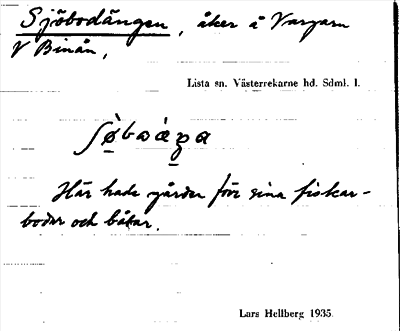 Sjöbodängen, åker å Vargarn
V Binån,
Lista sn. Västerrekarne hd. Sdml. 1.
Här hade gården före sina fiskar-
bodar och båtar.
Lars Hellberg 1935.